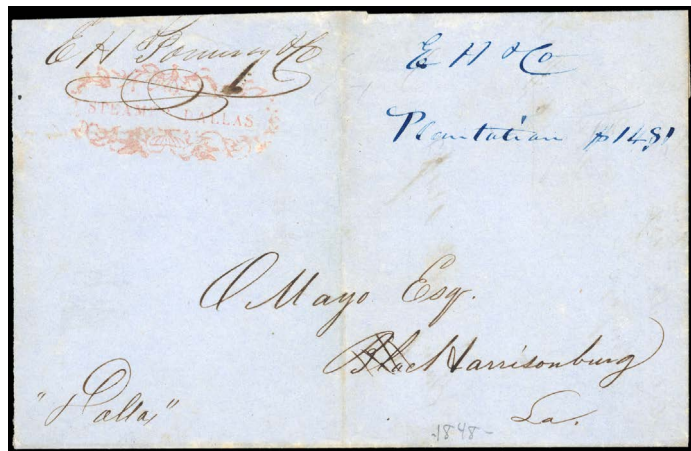 E H Pomeroy & Co
STEAMER DALLAS
E H & Co
Plantation $1481
O Mayo Esqr.
Harrisonburg
La.
"Dallas"
1848-